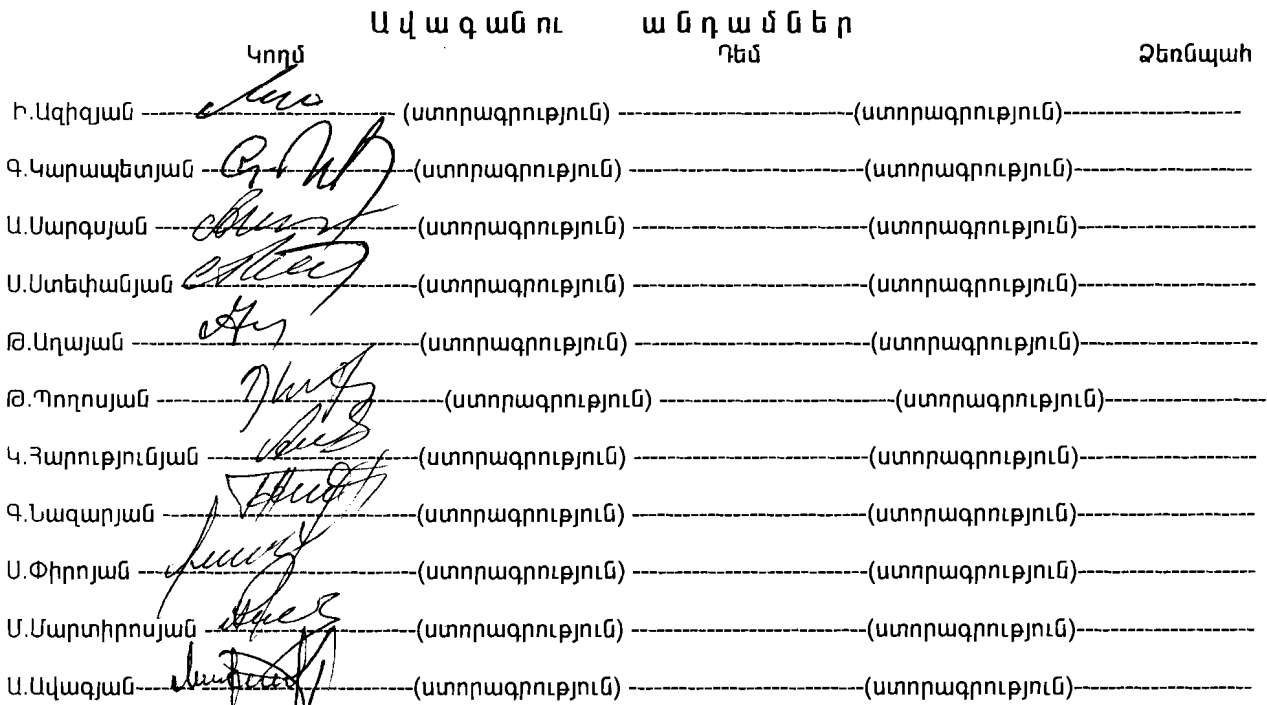 Ավագանու անդամներ
Կողմ Դեմ Ձեռնպահ
Ի.Ազիզյան ---------------------- (ստորագրություն) ----------------------(ստորագրություն)----------------------
Գ.Կարապետյան ----------------------(ստորագրություն) ----------------------(ստորագրություն)----------------------
Ա.Սարգսյան ----------------------(ստորագրություն) ----------------------(ստորագրություն)----------------------
Ս.Ստեփանյան ----------------------(ստորագրություն) ----------------------(ստորագրություն)----------------------
Թ.Աղայան ----------------------(ստորագրություն) ----------------------(ստորագրություն)----------------------
Թ.Պողոսյան ----------------------(ստորագրություն) ----------------------(ստորագրություն)----------------------
Կ.Հարությունյան ----------------------(ստորագրություն) ----------------------(ստորագրություն)----------------------
Գ.Նազարյան ----------------------(ստորագրություն) ----------------------(ստորագրություն)----------------------
Ս.Փիրոյան ----------------------(ստորագրություն) ----------------------(ստորագրություն)----------------------
Մ.Մարտիրոսյան ----------------------(ստորագրություն) ----------------------(ստորագրություն)----------------------
Ա.Ավագյան----------------------(ստորագրություն) ----------------------(ստորագրություն)----------------------